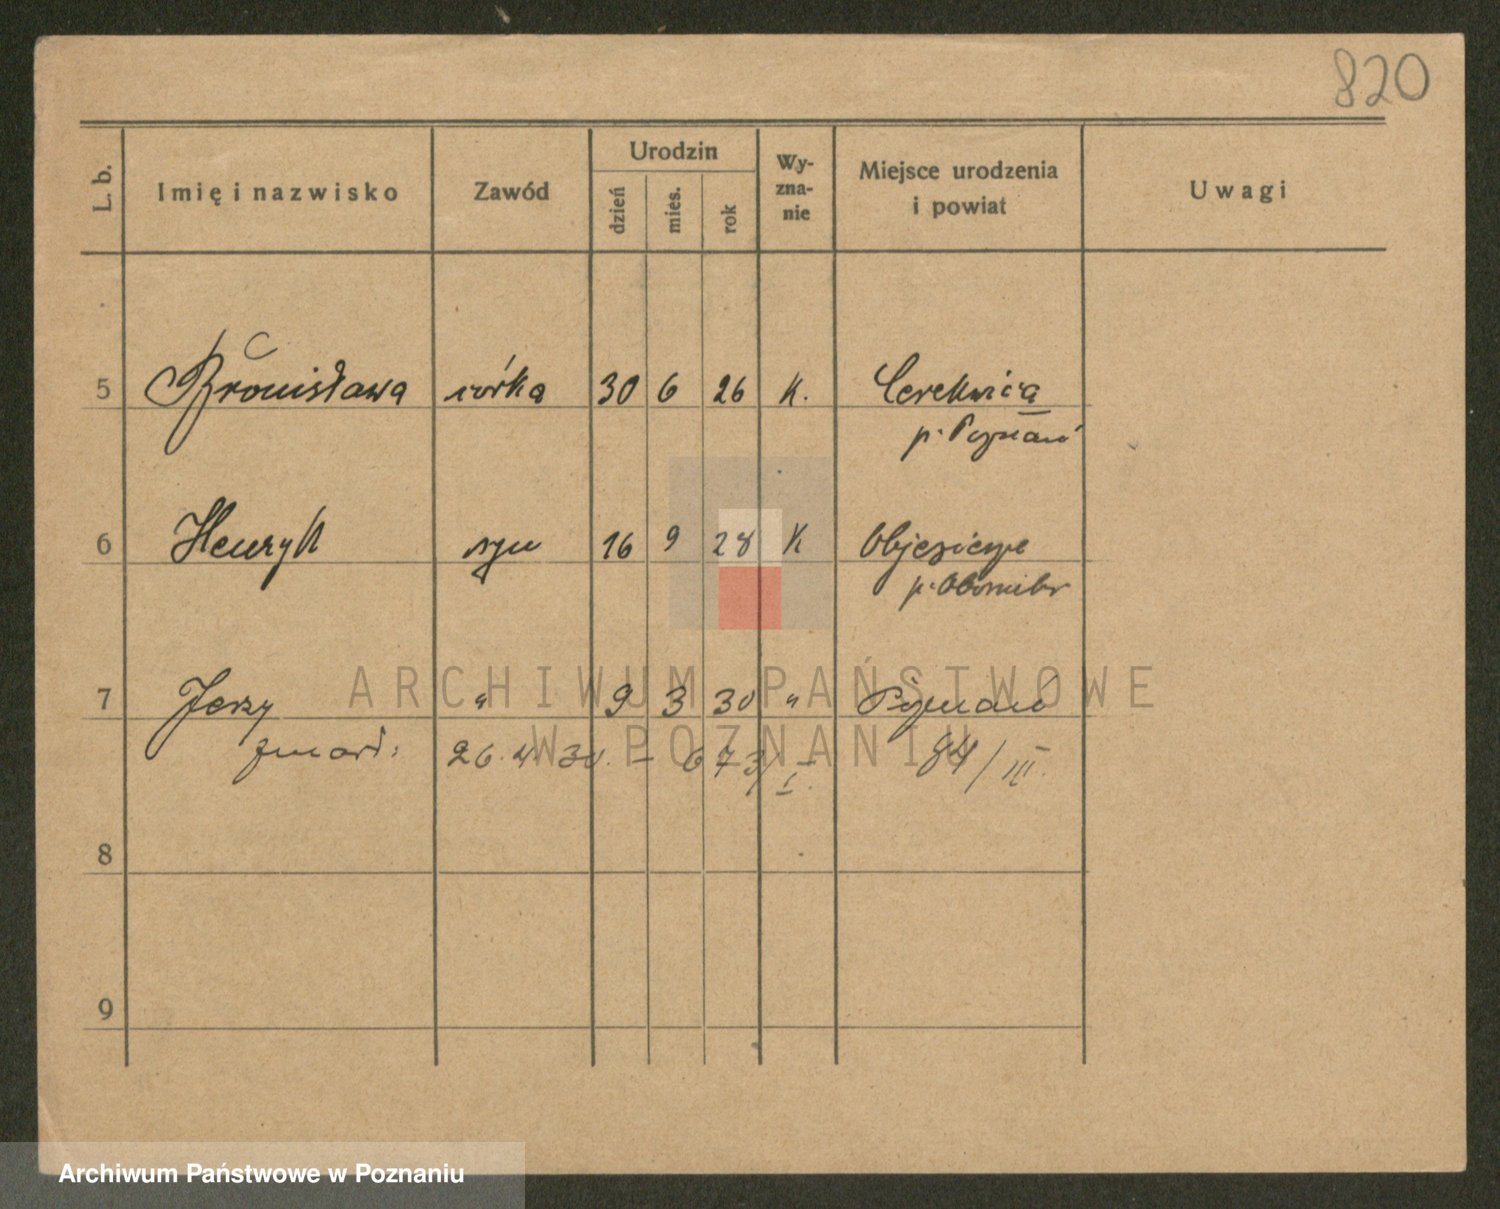 820
L. b. Imię i nazwisko Zawód Urodzin dzień mies. rok Wy-zna-nie Miejsce urodzenia i powiat Uwagi
5 Bronisława córka 30 6 26 K. Cerekwica
p. Poznań
6 Henryk syn 16 9 28 K Objezierze
p. Oborniki
7 Jerzy " 9 3 30 " Poznań
zmarł: 26.4.30. – 673/I. 84/III.
8
9
ARCHIWUM PAŃSTWOWE
W POZNANIU
Archiwum Państwowe w Poznaniu